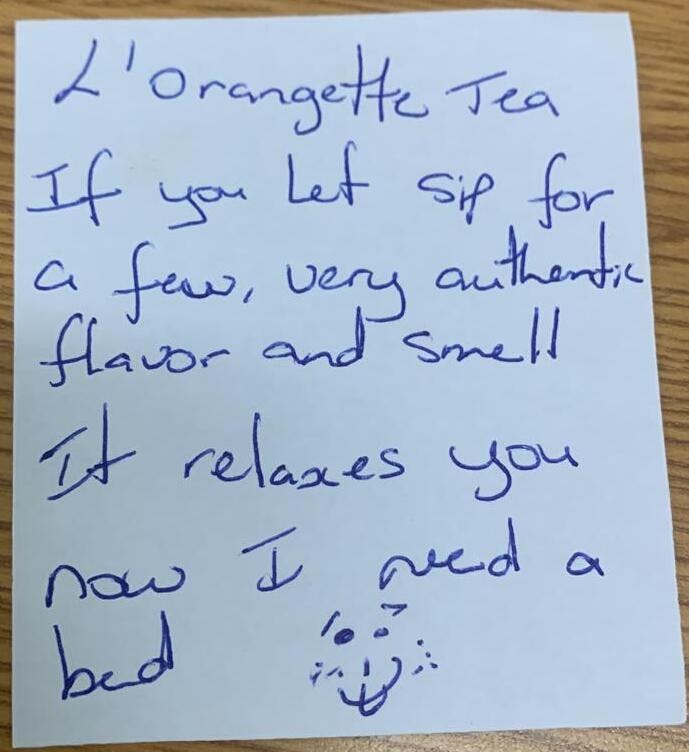 L'Orangette Tea
If you let sip for
a few, very authentic
flavor and smell
It relaxes you
now I need a
bed